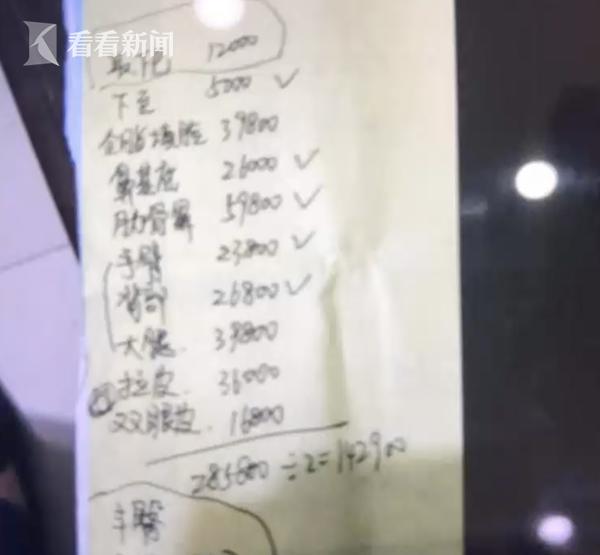 看看新闻
12000
下至 5000 ✓
39800
鼻基底 26000 ✓
肋骨鼻 59800 ✓
手臂 23800 ✓
背部 26800 ✓
大腿. 39800
拉皮. 36000
双眼皮. 16800
285800÷2=142900
手臂